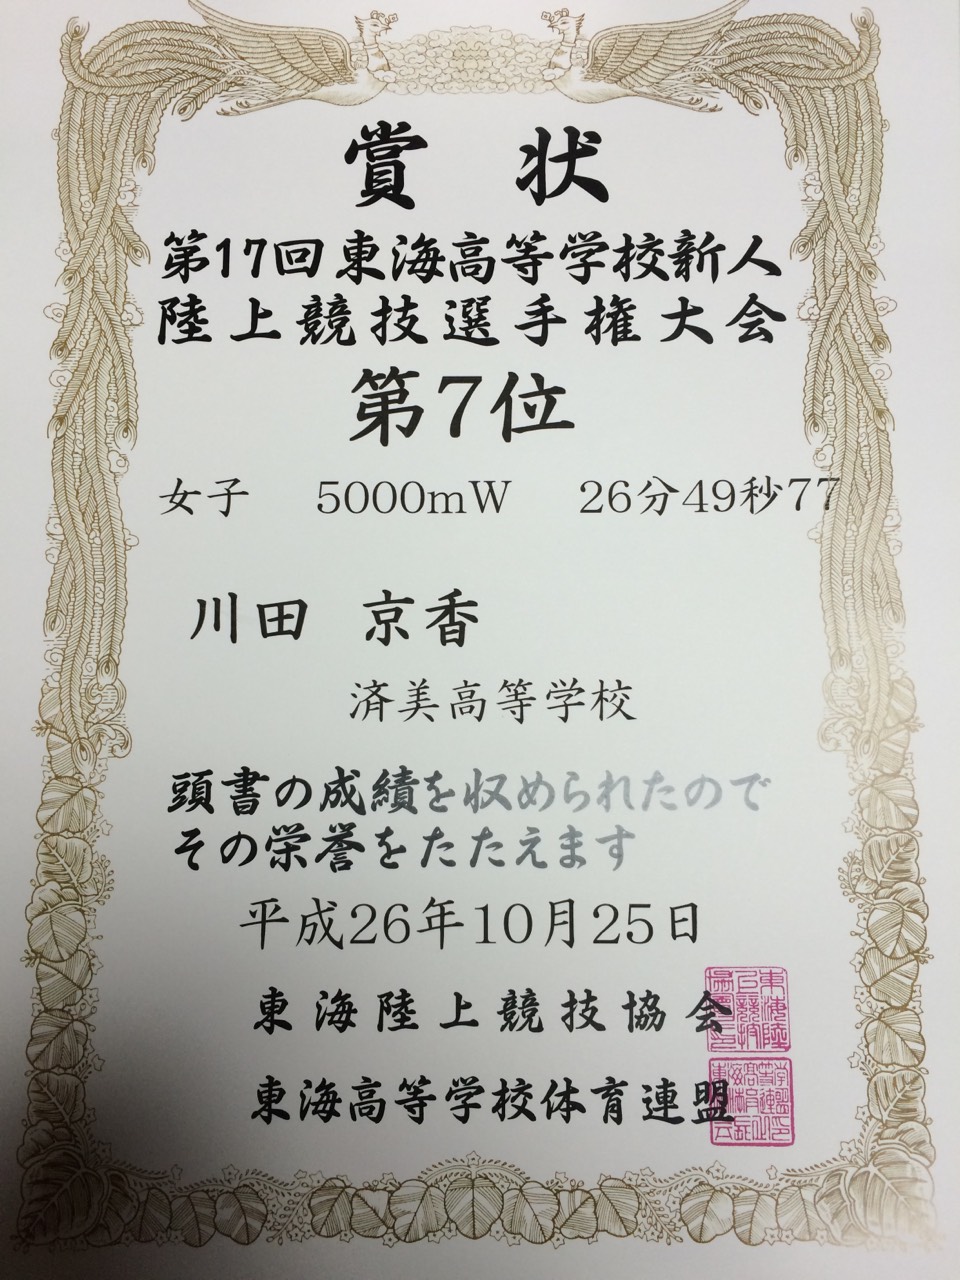 賞状
第17回東海高等学校新人
陸上競技選手権大会
第7位
女子 5000mW 26分49秒77
川田 京香
済美高等学校
頭書の成績を収められたので
その栄誉をたたえます
平成26年10月25日
東海陸上競技協会
東海高等学校体育連盟